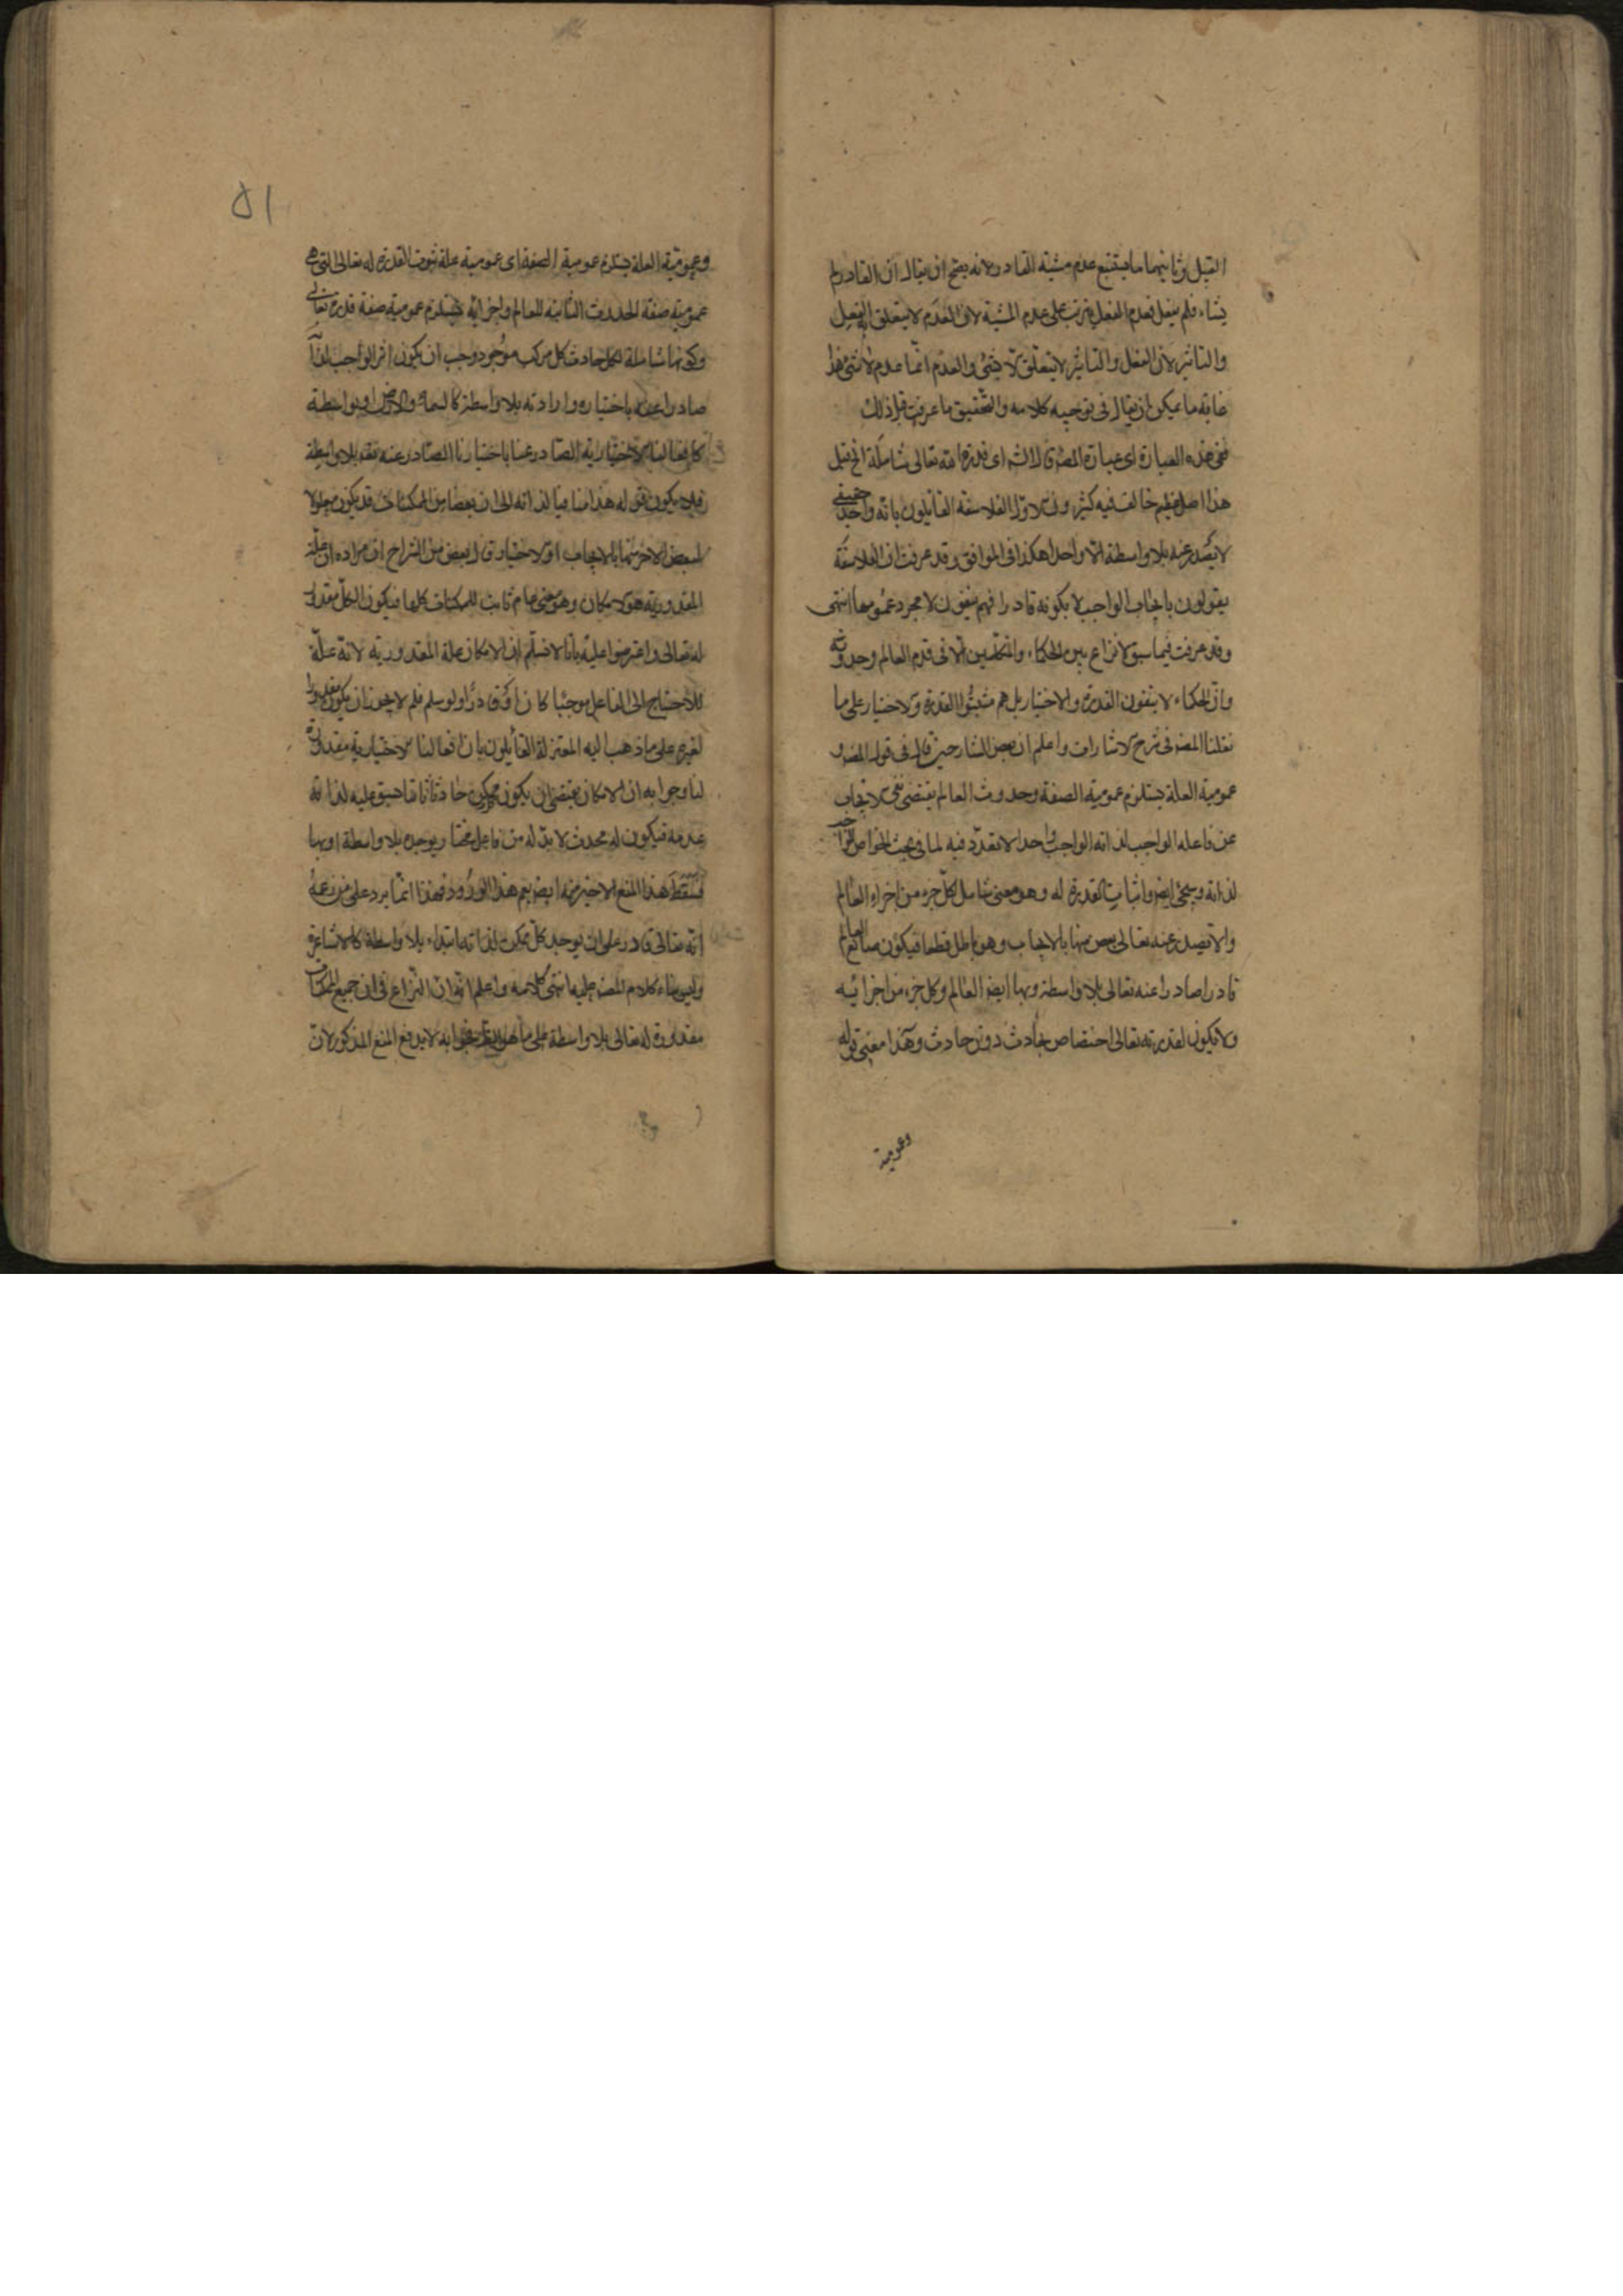 القبيل وثانيهما ما يستتبع عدم مشية القادر لانه يصح ان يقال ان القادر لم
يشاء فلم يفعل فعدم الفعل يترتب على عدم المشية لان العدم لا يتعلق الفعل
والتاثير لان الفعل والتاثير لا يتعلق الا بشئ والعدم انما عدم لا شئ هذا
غاية ما يمكن ان يقال فى توجيه كلامه والتحقيق ما عرفت قبل ذلك
فى هذه العبارة اى عبارة المصـ قال الشـ اى قدرة الله تعالى شاملة الخ قيل
هذا اصل عظيم خالف فيه كثير والاول الفلاسفة القايلون بانه واحد حقيقى
لا يصدر عنه بلا واسطة الا واحد هكذا فى المواقف وقد عرفت ان الفلاسفة
يقولون بايجاب الواجب لا بكونه قادرا فهم ينفون لا مجرد عمومها انتهى
وقد عرفت فيما سبق لا نزاع بين الحكماء والمتكلمين الا فى قدم العالم وحدوثه
وان الحكماء لا ينفون القدرة والاختيار بل هم مثبتوا القدرة والاختيار على ما
نقلنا المصـ فى شرح الاشارات واعلم ان بعض الشارحين قال فى قول المصـ و
عمومية العلة يستلزم عمومية الصفة وحدوث العالم يقتضى نفى الايجاب
عن فاعله الواجب لذاته الواجب واحد لا تعدد فيه لما فى بحث الخواص
لذاته وسيجئ ايضـ واثبات القدرة له وهو معنى شامل لكل جزء من اجزاء العالم
والا فيصدر عنه تعالى بعض منها بالايجاب وهو باطل قطعا فيكون صانع العالم
قادرا صادرا عنه تعالى بلا واسطة وبها ايضـ العالم وكل جزء من اجزائيه
ولا تكون لقدرته تعالى اختصاص بحادث دون حادث وهذا معنى قوله
وعمومية
٥١
وعمومية العلة يستلزم عمومية الصفة اى عمومية علة ثبوت القدرة له تعالى التى هى
عمومية صفة الحدوث الثابتة للعالم واجزائه يستلزم عمومية صفة قدرته تعالى
وكونها شاملة لكل حادث كل مركب موجود وجب ان يكون اثر الواجب لذاته
صادرا عنه باختياره وارادته بلا واسطة كالسماء والارض او بواسطة
كافعالنا الاختيارية الصادر عنا باختيارنا الصادر عنه فقد بلا واسطة
فلا يكون قوله هذا منافيا لذاته الى ان بعضا من الممكنات قد يكون معلولا
لبعض الاخر منها بالايجاب او الاختيار وقال بعض من الشراح ان مراده ان علة
المقدورية هو الامكان وهو معنى عام ثابت للممكنات كلها فيكون الكل مقدورا
له تعالى واعترضوا عليه بانا لا نسلم ان الامكان علة المقدورية لانه علة
للاحتياج الى الفاعل موجبا كان او قادرا ولو سلم فلم لا يجوز ان يكون مقدورا
لغيره على ما ذهب اليه المعتزلة القايلون بان افعالنا الاختيارية مقدورة
لنا وجوابه ان الامكان يقتضى ان يكون ممكن حادثا سابق عليه لذاته
عدمه فيكون له محدث لا بد له من فاعل مختار يوجده بلا واسطة او بها
فسقط هذا المنع الاخير منه ايضـ نعم هذا الورود فهذا انما يرد على من زعم
انه تعالى قادر على ان يوجد كل ممكن لذاته ابتداء بلا واسطة كالاشاعرة
وليس بناء كلام المصـ عليه انتهى كلامه واعلم انه ان النزاع فى ان جميع الممكنات
مقدورة له تعالى بلا واسطة على ما هو الظاهر فجوابه لا يدفع المنع المذكور لان